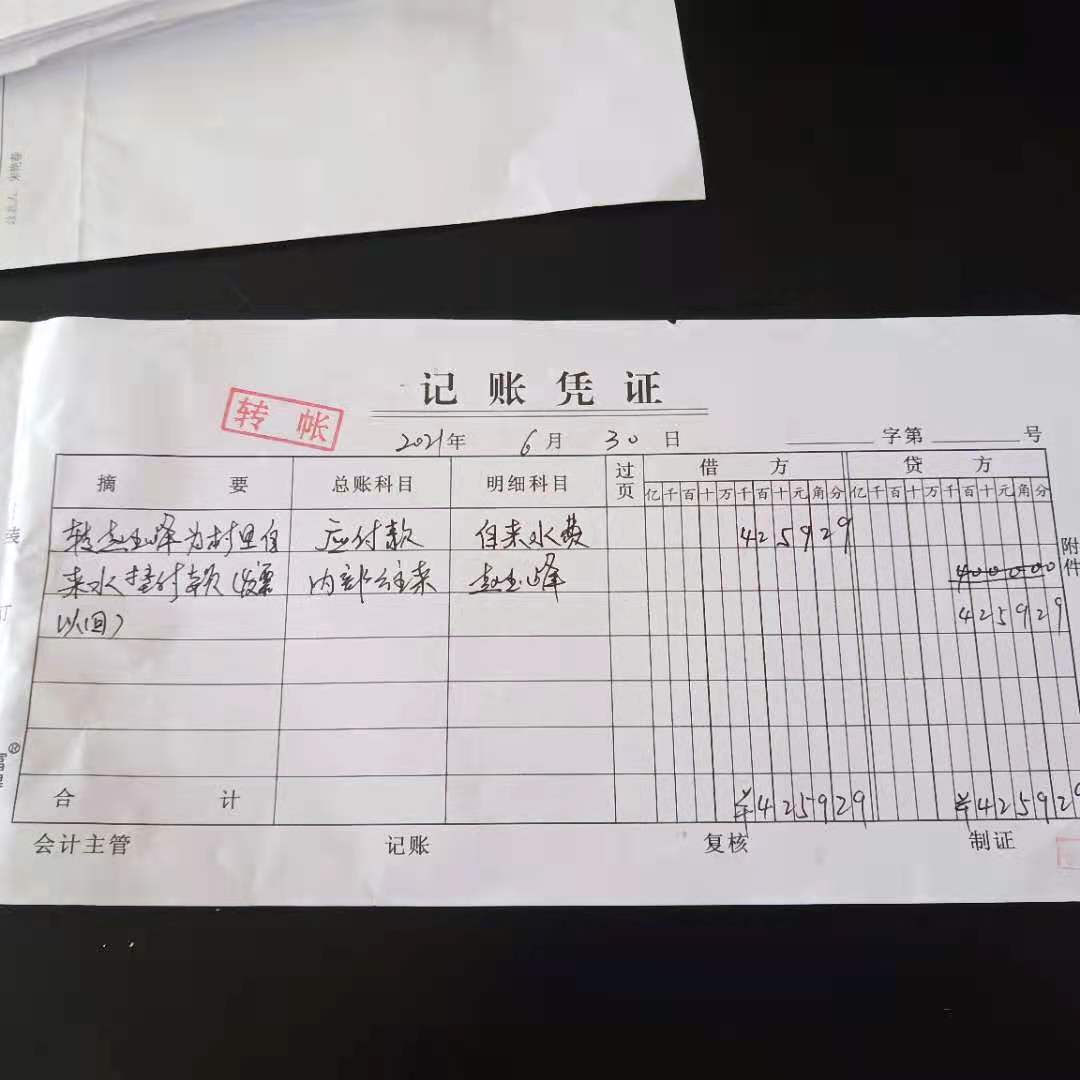 记账凭证
转帐
2021年 6月 30日 字第 号
摘要 总账科目 明细科目 过页 借方 贷方
亿千百十万千百十元角分 亿千百十万千百十元角分
转赵玉峰为村里自 应付款 自来水费 425929
附件
来水垫付款(发票 内部往来 赵玉峰 400000
以回) 425929
合计 ¥425929 ¥425929
会计主管 记账 复核 制证
装
订